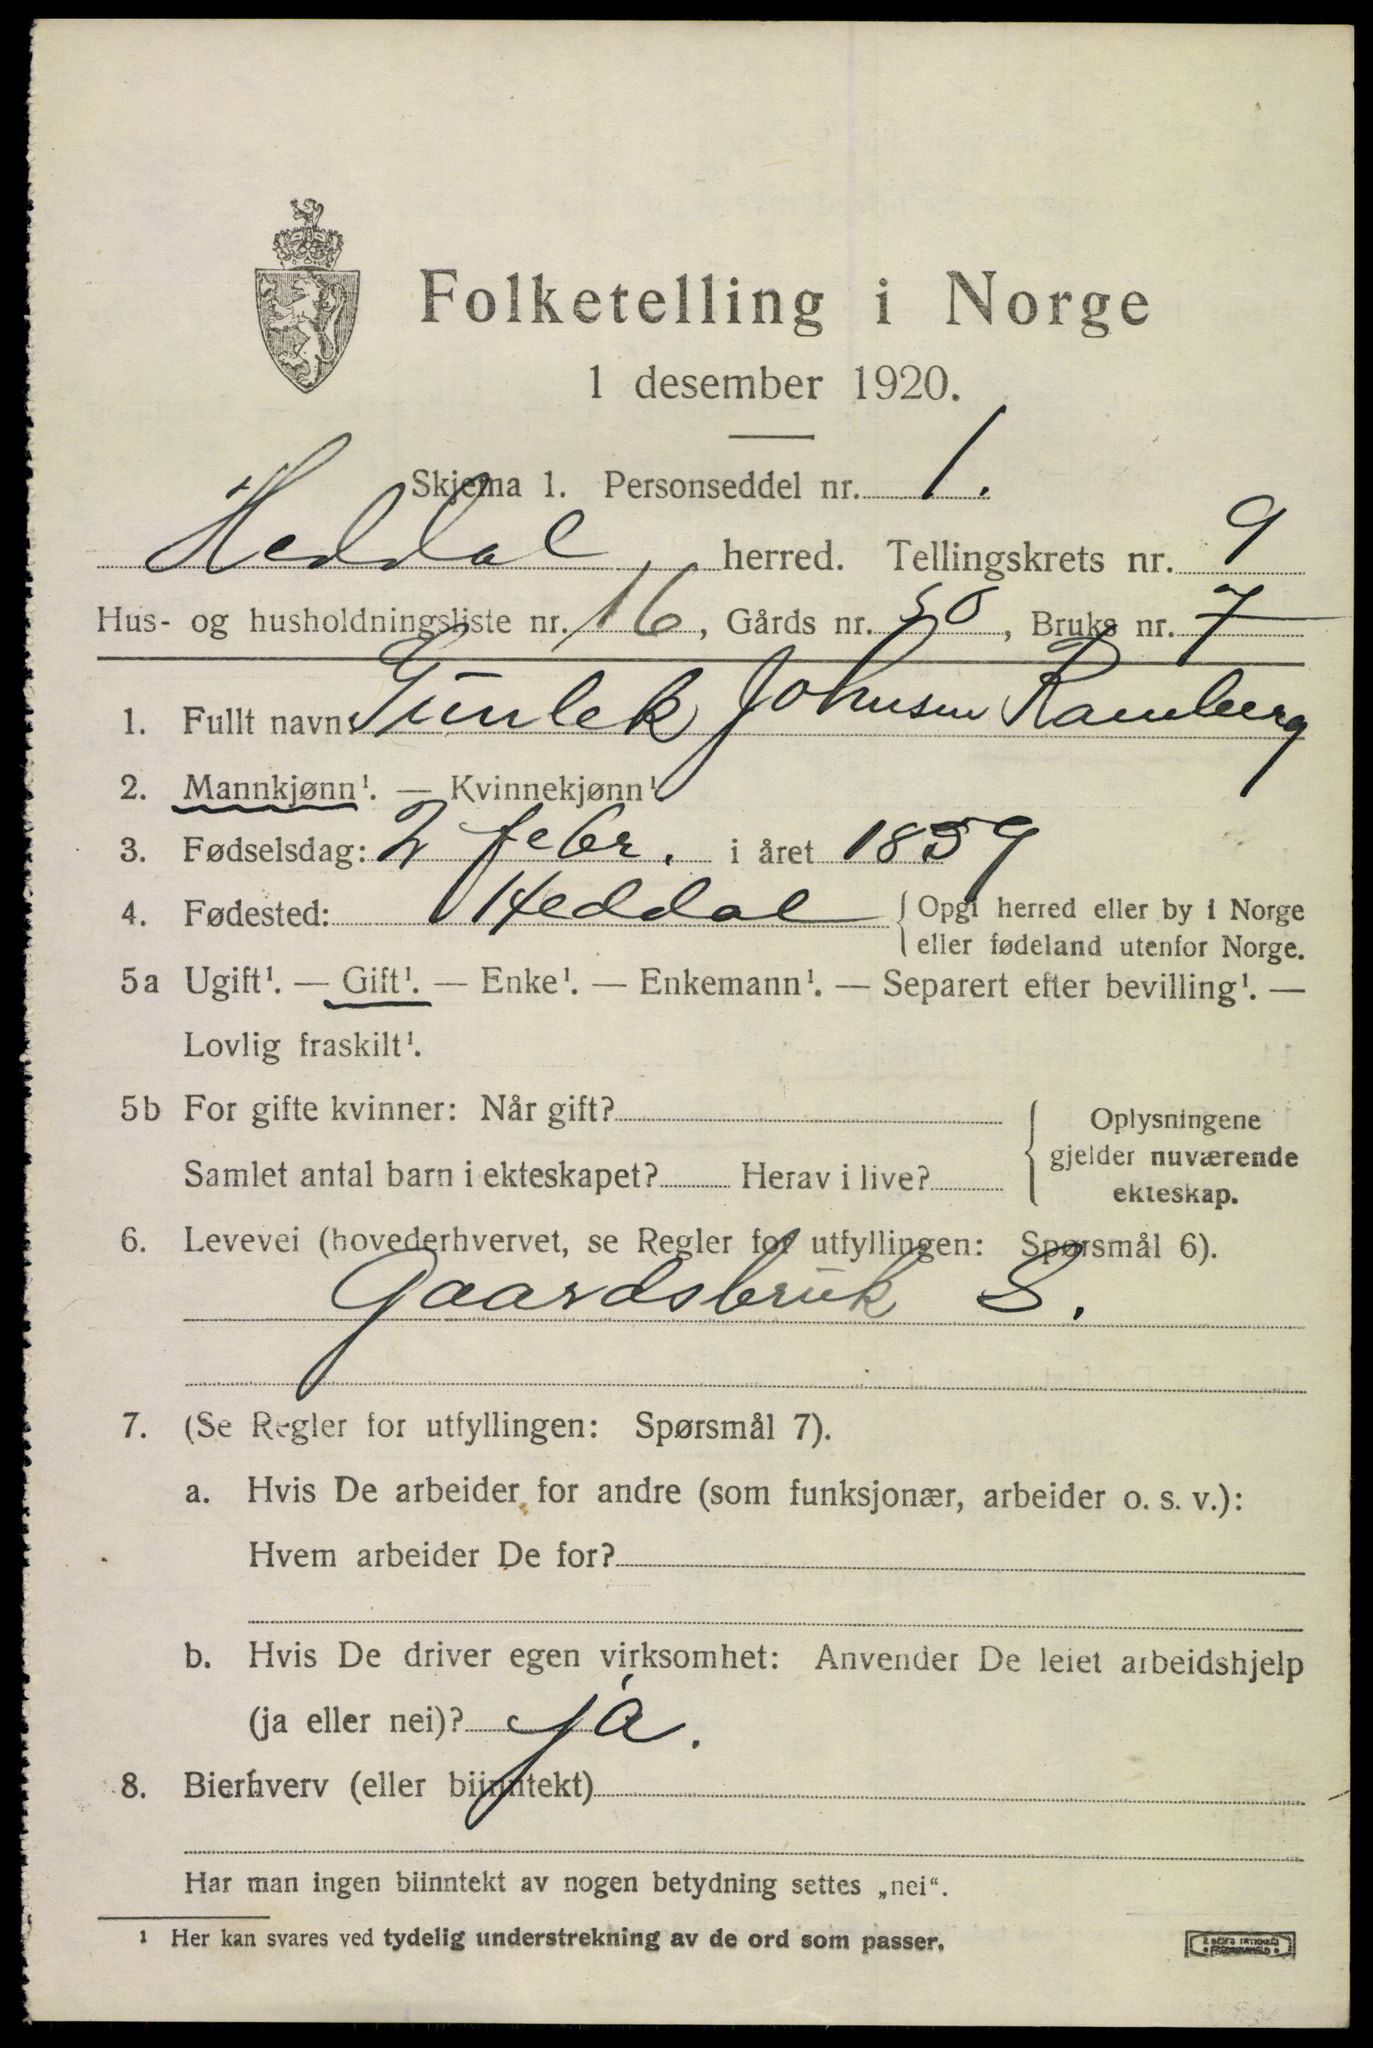 Folketelling i Norge
1 desember 1920.
Skjema 1. Personseddel nr. 1.
Heddal herred. Tellingskrets nr. 9
Hus- og husholdningsliste nr. 16, Gårds nr. 50, Bruks nr. 7
1. Fullt navn: Gunlek Johnsen Ramberg
2. Mannkjønn¹. — Kvinnekjønn¹.
3. Fødselsdag: 2 febr. i året 1859
4. Fødested: Heddal { Opgi herred eller by i Norge
eller fødeland utenfor Norge.
5a Ugift¹. — Gift¹. — Enke¹. — Enkemann¹. — Separert efter bevilling¹. —
Lovlig fraskilt¹.
5b For gifte kvinner: Når gift?
Samlet antal barn i ekteskapet? Herav i live?
Oplysningene
gjelder nuværende
ekteskap.
6. Levevei (hovederhvervet, se Regler for utfyllingen: Spørsmål 6).
Gaardsbruk S.
7. (Se Regler for utfyllingen: Spørsmål 7).
a. Hvis De arbeider for andre (som funksjonær, arbeider o. s. v.):
Hvem arbeider De for?
b. Hvis De driver egen virksomhet: Anvender De leiet arbeidshjelp
(ja eller nei)? ja.
8. Bierhverv (eller biinntekt)
Har man ingen biinntekt av nogen betydning settes „nei“.
¹ Her kan svares ved tydelig understrekning av de ord som passer.